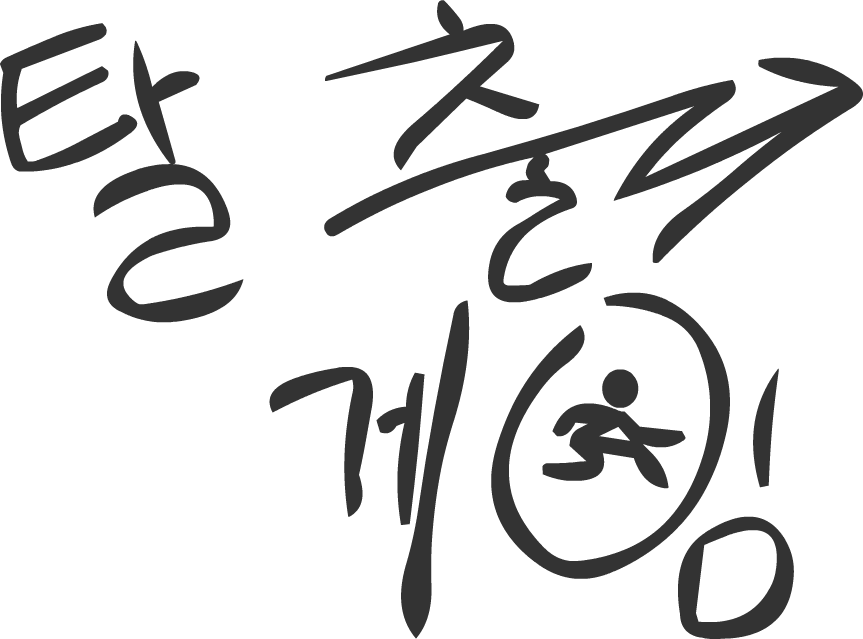 탈출
게임